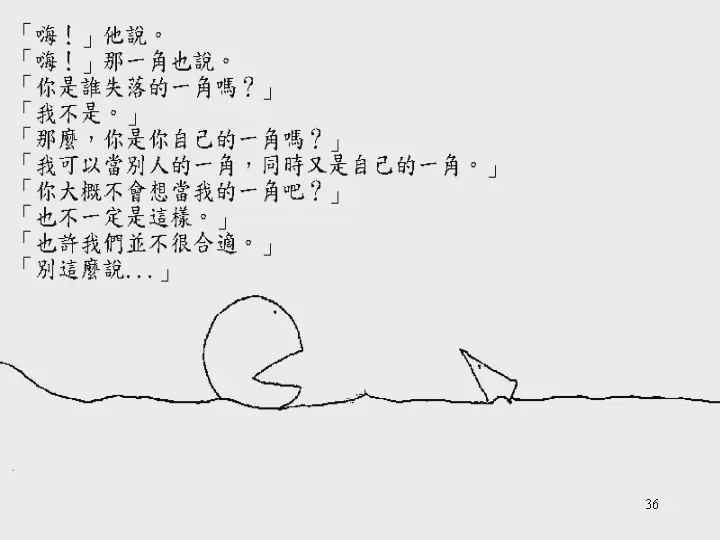 「嗨！」他說。
「嗨！」那一角也說。
「你是誰失落的一角嗎？」
「我不是。」
「那麼，你是你自己的一角嗎？」
「我可以當別人的一角，同時又是自己的一角。」
「你大概不會想當我的一角吧？」
「也不一定是這樣。」
「也許我們並不很合適。」
「別這麼說...」
36